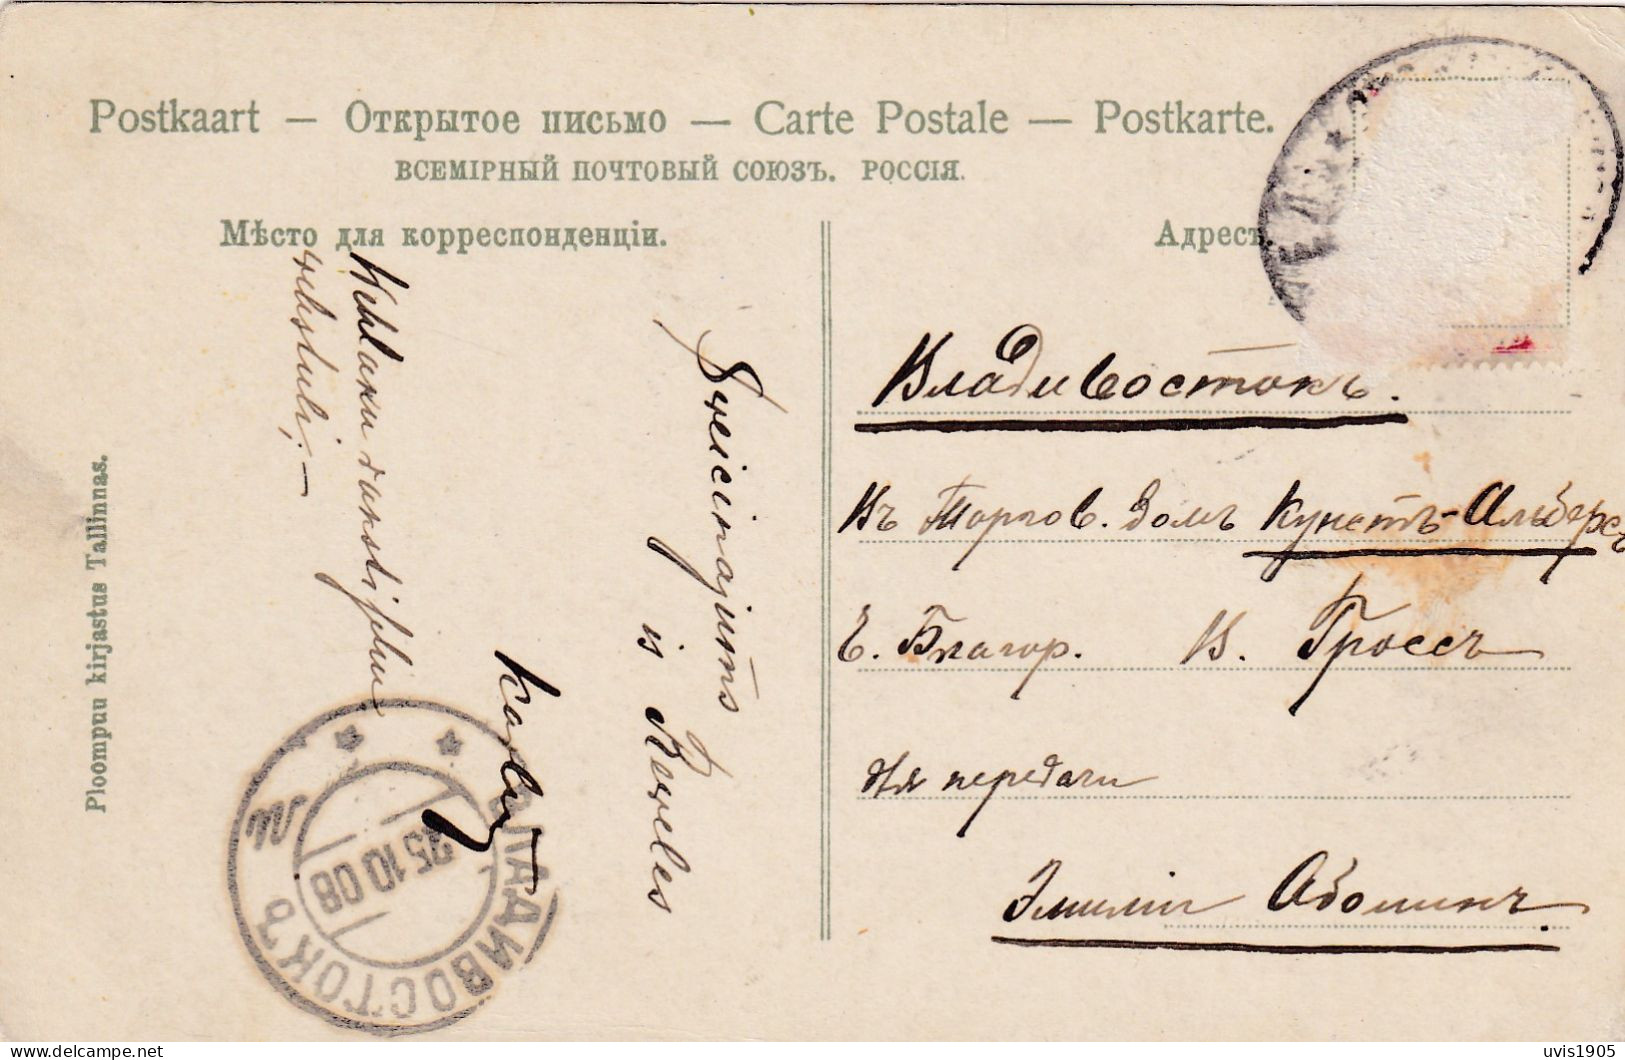 Postkaart — Открытое письмо — Carte Postale — Postkarte.
ВСЕМІРНЫЙ ПОЧТОВЫЙ СОЮЗЪ. РОССІЯ.
Мѣсто для корреспонденціи.
Адресъ.
Sveicinajums
is Reveles
Karly
rakstuli; —
Ploompuu kirjastus Tallinnas.
ВЛАДИВОСТОКЪ
25 10 08
Владивостокъ.
Въ Торгов. Домъ Кунстъ-Альберсъ
Е. Благор. В. Гроссъ
для передачи
Эмиліи Аболинъ.
uvis1905